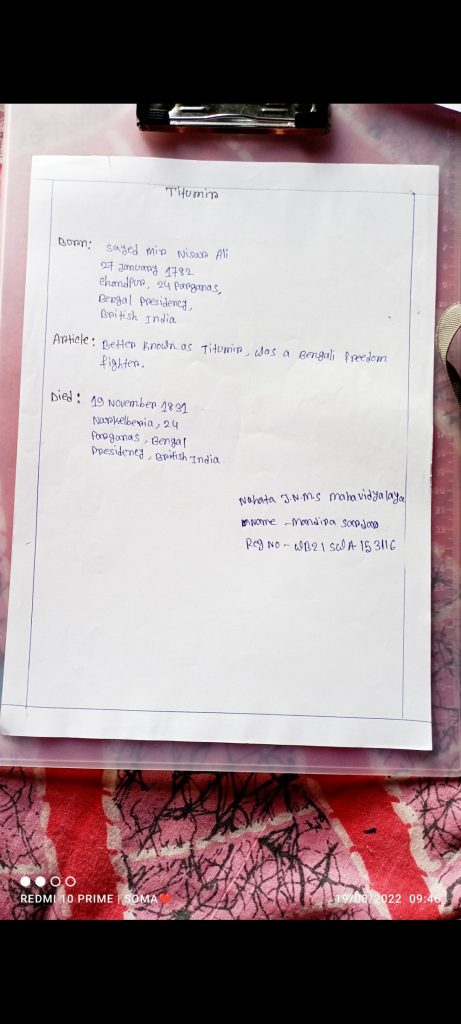 Titumir
Born: Sayed Mir Nisar Ali
27 January 1782
Chandpur, 24 Parganas,
Bengal Presidency,
British India
Article: Better known as Titumir, was a Bengali freedom
fighter.
Died: 19 November 1831
Narkelberia, 24
Parganas, Bengal
Presidency, British India.
Nahata J.N.M.S Mahavidyalaya
Name - Mandira Sardar
Reg No - WB21SWA153116
REDMI 10 PRIME | SOMA❤️
19/08/2022 09:46